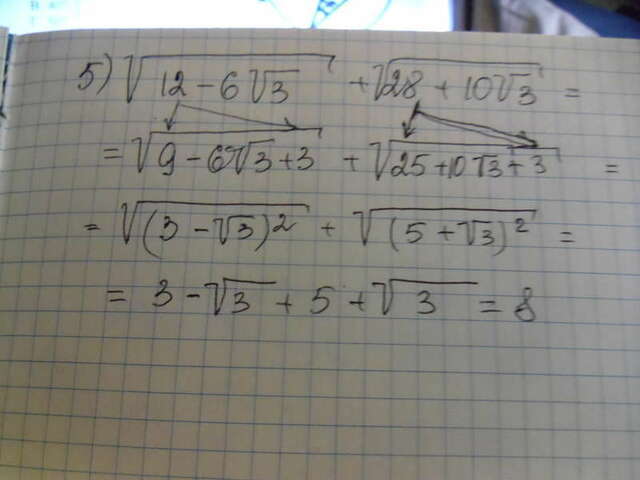 5) √(12 - 6√3) + √(28 + 10√3) =
= √(9 - 6√3 + 3) + √(25 + 10√3 + 3) =
= √((3 - √3)²) + √((5 + √3)²) =
= 3 - √3 + 5 + √3 = 8